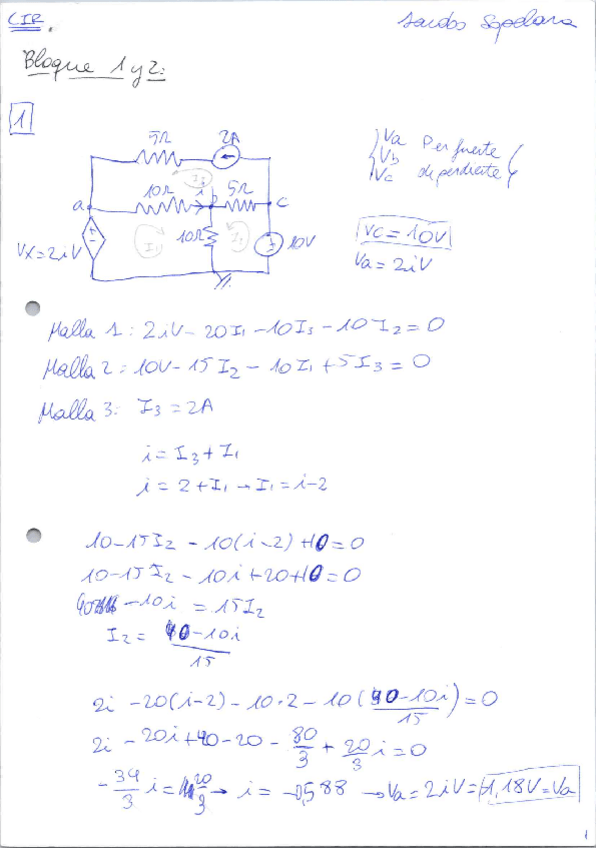 CIR.
Bloque 1 y 2:
1
5Ω 2A
10Ω i 5Ω
I3
a b c
10Ω
I1 I2
10V
Vx=2iV
Va Por fuente
Vb
Vc dependiente
Vc=10V
Va=2iV
Malla 1: 2iV-20I1-10I3-10I2=0
Malla 2: 10V-15I2-10I1+5I3=0
Malla 3: I3=2A
i=I3+I1
i=2+I1→I1=i-2
10-15I2-10(i-2)+10=0
10-15I2-10i+20+10=0
40-10i=15I2
I2= 40-10i
15
2i-20(i-2)-10·2-10(40-10i)=0
15
2i-20i+40-20-80/3+20/3i=0
-34/3i=20/3→i=-0,588→Va=2iV=-1,18V=Va
1